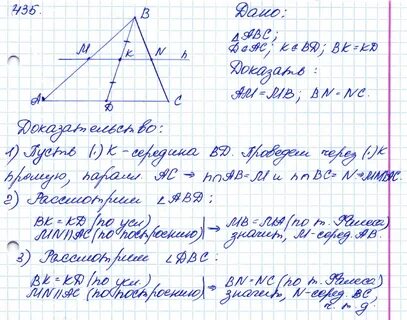 435.
Дано:
△ABC;
D∈AC; K∈BD; BK=KD
Доказать:
AM=MB; BN=NC.
B
M K N n
A D C
Доказательство:
1) Пусть (·) K - середина BD. Проведем через (·) K
прямую, паралл. AC ⇒ n∩AB=M и n∩BC=N ⇒ MN∥AC.
2) Рассмотрим ∠ABD:
BK=KD (по усл) ⇒ MB=MA (по т. Фалеса)
MN∥AC (по построению) значит, M-серед AB.
3) Рассмотрим ∠DBC:
BK=KD (по усл.) ⇒ BN=NC (по т. Фалеса)
MN∥AC (по построению) значит, N-серед. BC,
ч.т.д.